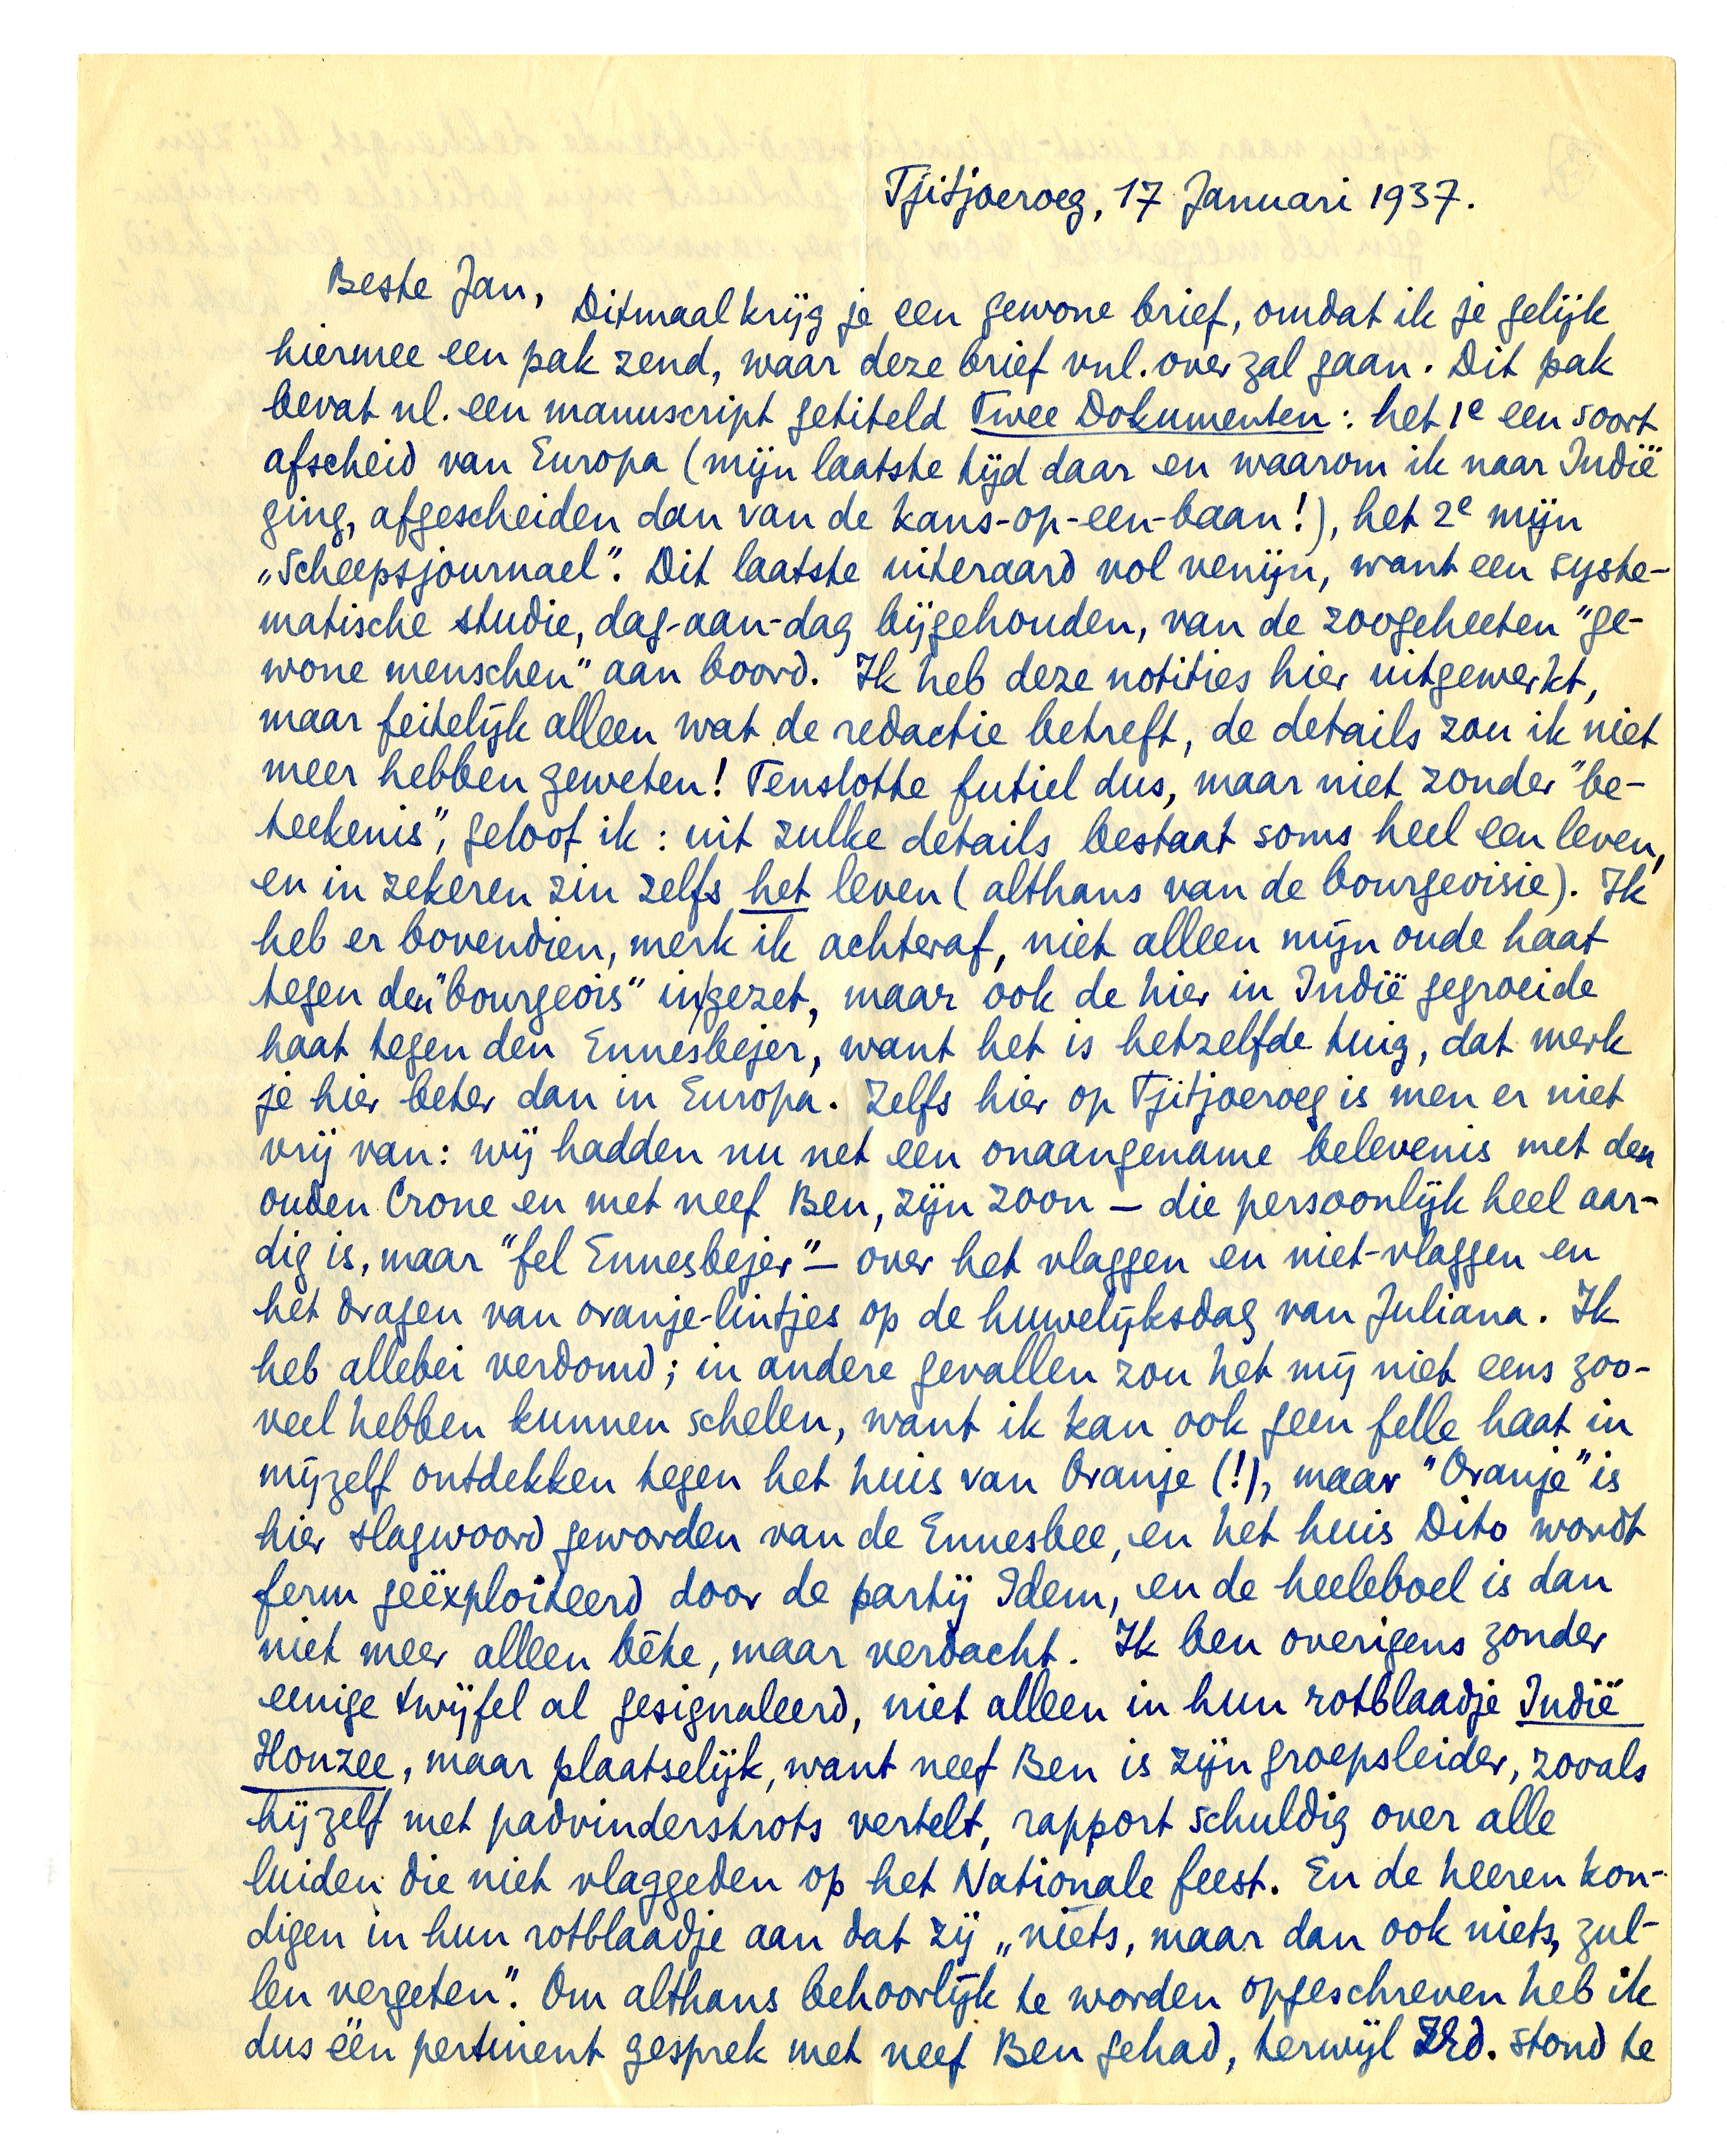 Tjitjoeroeg, 17 Januari 1937.
Beste Jan,
Ditmaal krijg je een gewone brief, omdat ik je gelijk
hiermee een pak zend, waar deze brief vnl. over zal gaan. Dit pak
bevat nl. een manuscript getiteld Twee Dokumenten: het 1e een soort
afscheid van Europa (mijn laatste tijd daar en waarom ik naar Indië
ging, afgescheiden dan van de kans-op-een-baan!), het 2e mijn
„Scheepsjournael”. Dit laatste uiteraard vol venijn, want een syste-
matische studie, dag-aan-dag bijgehouden, van de zoogeheeten "ge-
wone menschen" aan boord. Ik heb deze notities hier uitgewerkt,
maar feitelijk alleen wat de redactie betreft, de details zou ik niet
meer hebben geweten! Tenslotte futiel dus, maar niet zonder "be-
teekenis", geloof ik: uit zulke details bestaat soms heel een leven,
en in zekeren zin zelfs het leven (althans van de bourgeoisie). Ik
heb er bovendien, merk ik achteraf, niet alleen mijn oude haat
tegen den "bourgeois" in gezet, maar ook de hier in Indië gegroeide
haat tegen den Ennesbejer, want het is hetzelfde tuig, dat merk
je hier beter dan in Europa. Zelfs hier op Tjitjoeroeg is men er niet
vrij van: wij hadden nu net een onaangename belevenis met den
ouden Crone en met neef Ben, zijn zoon – die persoonlijk heel aar-
dig is, maar "fel Ennesbejer" – over het vlaggen en niet-vlaggen en
het dragen van oranje-lintjes op de huwelijksdag van Juliana. Ik
heb allebei verdomd; in andere gevallen zou het mij niet eens zoo-
veel hebben kunnen schelen, want ik kan ook geen felle haat in
mijzelf ontdekken tegen het huis van Oranje (!), maar "Oranje" is
hier slagwoord geworden van de Ennesbee, en het huis Dito wordt
ferm geëxploiteerd door de partij Idem, en de heeleboel is dan
niet meer alleen bête, maar verdacht. Ik ben overigens zonder
eenige twijfel al gesignaleerd, niet alleen in hun rotblaadje Indië
Houzee, maar plaatselijk, want neef Ben is zijn groepsleider, zooals
hijzelf met padvinderstrots vertelt, rapport schuldig over alle
luiden die niet vlaggeden op het Nationale feest. En de heeren kon-
digen in hun rotblaadje aan dat zij „niets, maar dan ook niets, zul-
len vergeten”. Om althans behoorlijk te worden opgeschreven heb ik
dus één pertinent gesprek met neef Ben gehad, terwijl ZEd. stond te